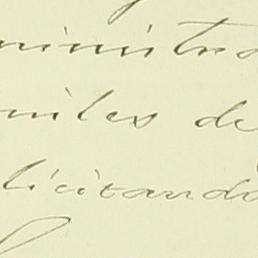 ministra
miles de
licitando